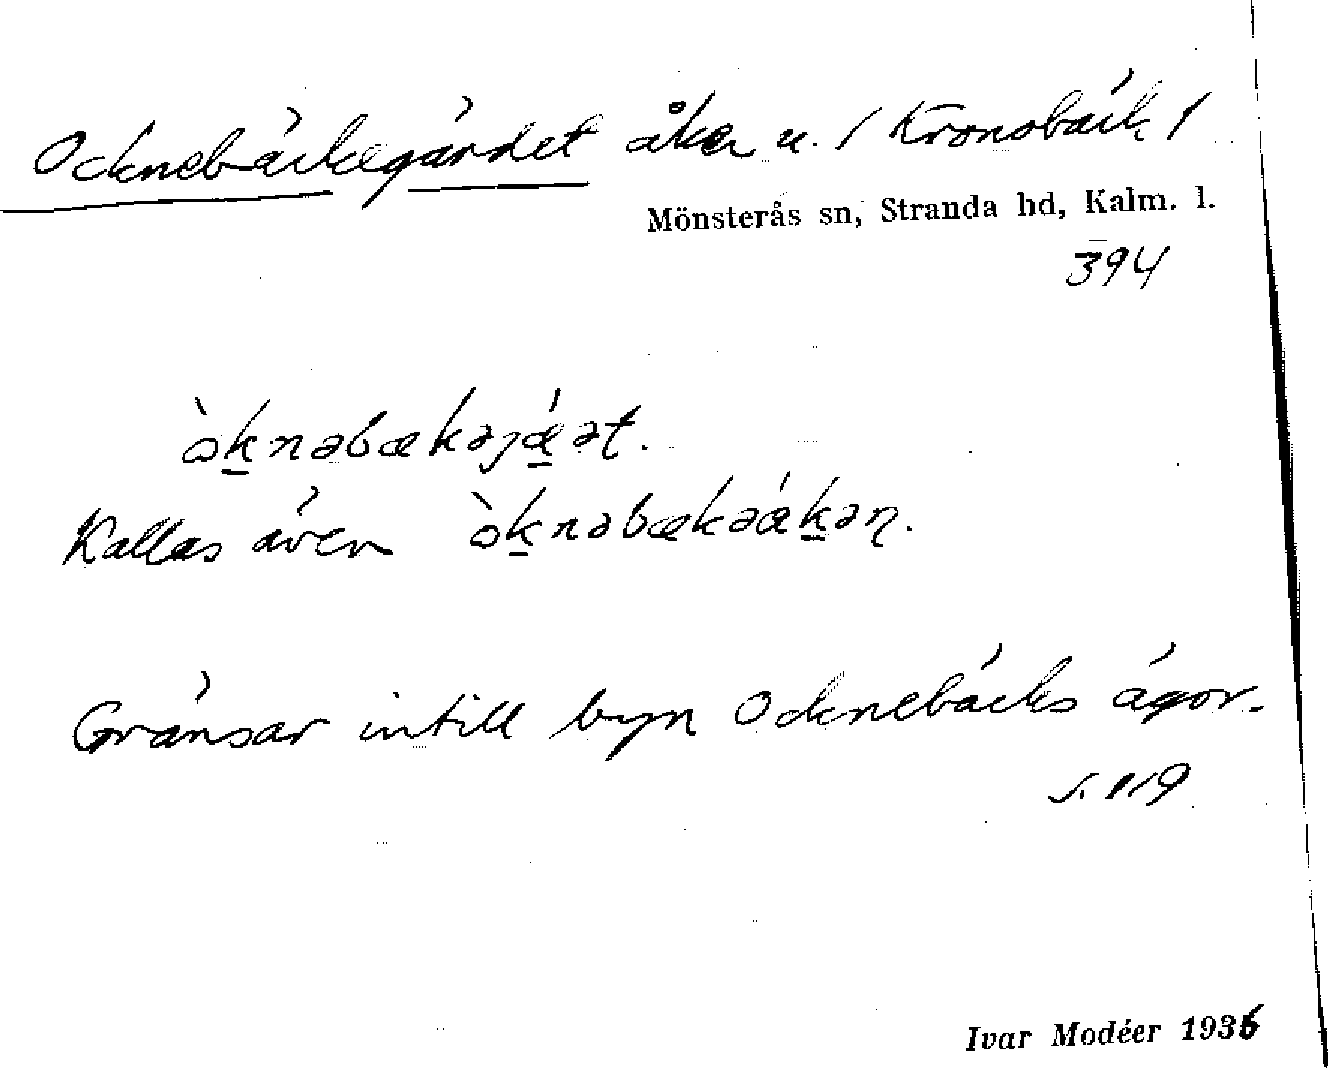 Ocknebäckegärdet åker u. / Kronobäck /
Mönsterås sn, Stranda hd, Kalm. l.
394
òk̲nəbækəȷǽ̲ət.
Kallas även òk̲nəbækəák̲əṇ.
Gränsar intill byn Ocknebäcks ägor.
s. 119
Ivar Modéer 1936